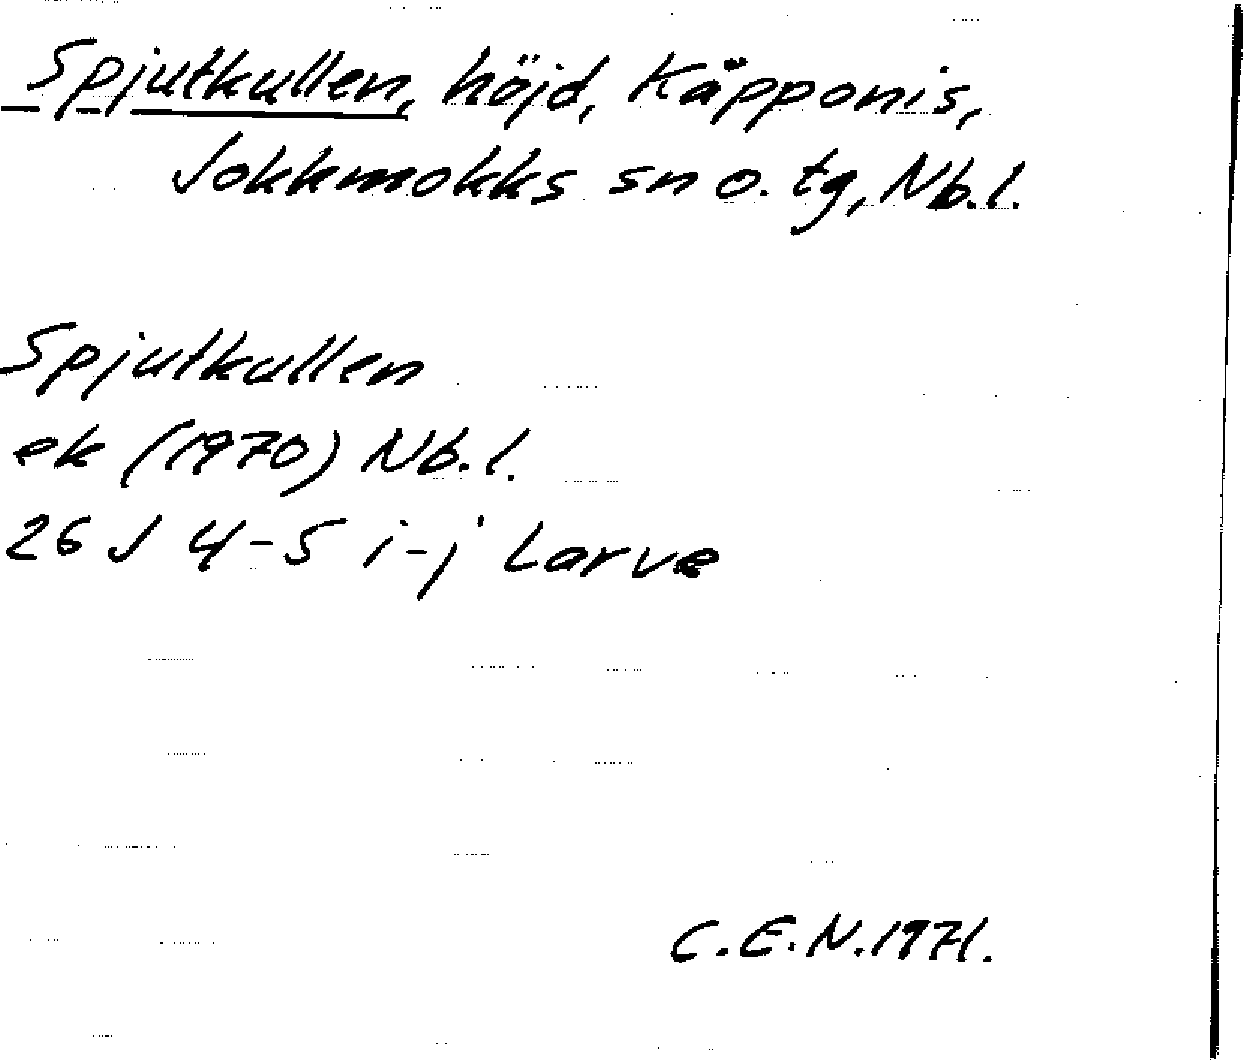 Spjutkullen, höjd, Käpponis,
Jokkmokks sn o. tg, Nb.l.
Spjutkullen
ek (1970) Nb.l.
26 J 4-5 i-j Larve
C.E.N. 1971.